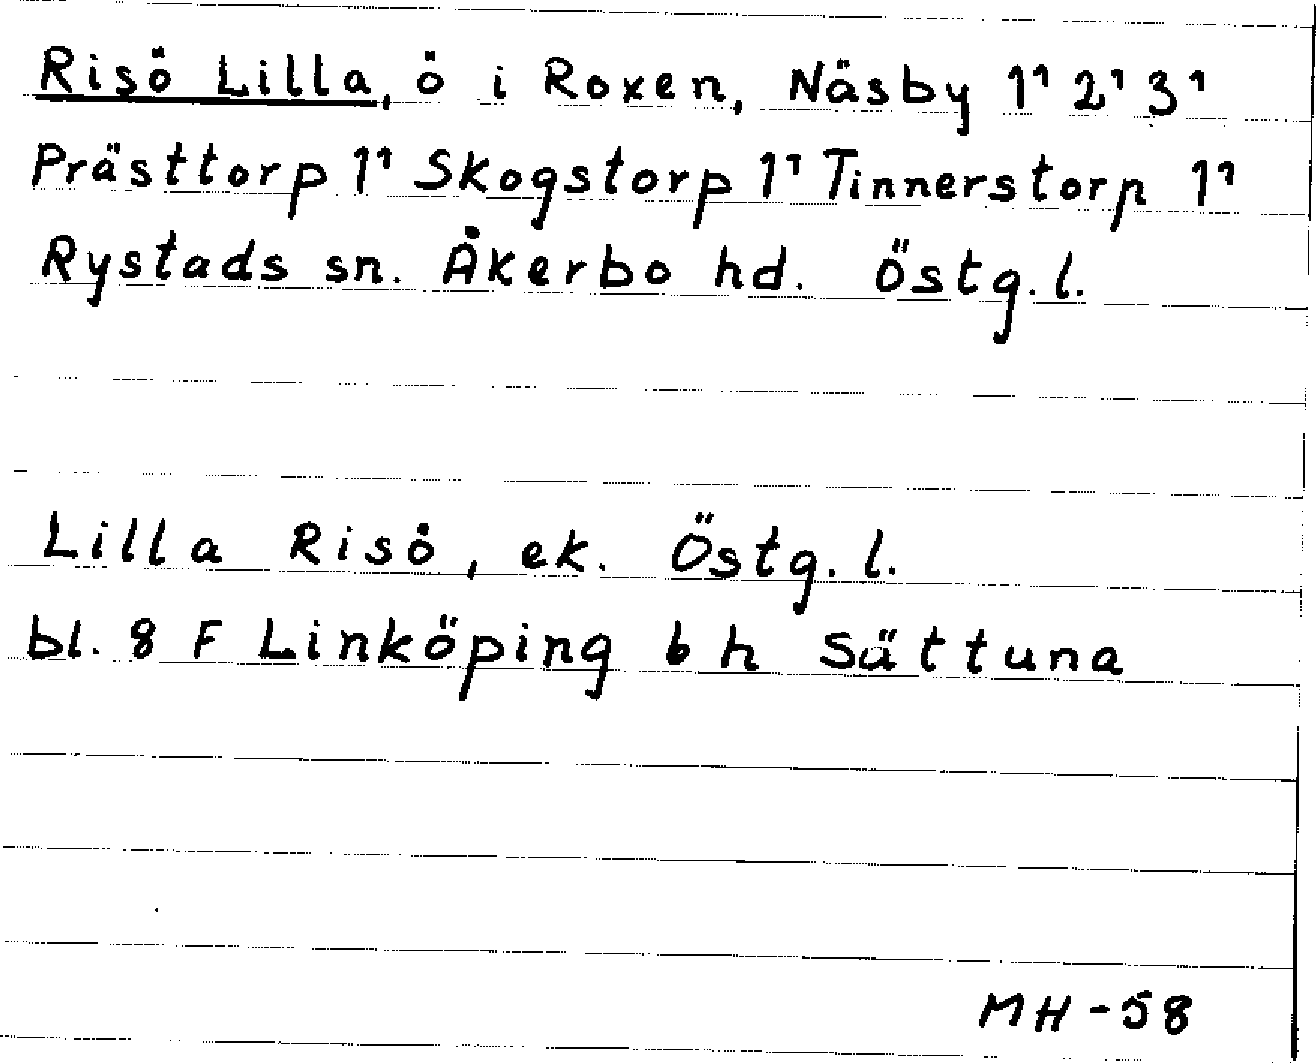 Risö Lilla, ö i Roxen, Näsby 1¹ 2¹ 3¹
Prästtorp 1¹ Skogstorp 1¹ Tinnerstorp 1¹
Rystads sn. Åkerbo hd. Östg. l.
Lilla Risö, ek. Östg. l.
bl. 8 F Linköping b h Sättuna
MH - 58